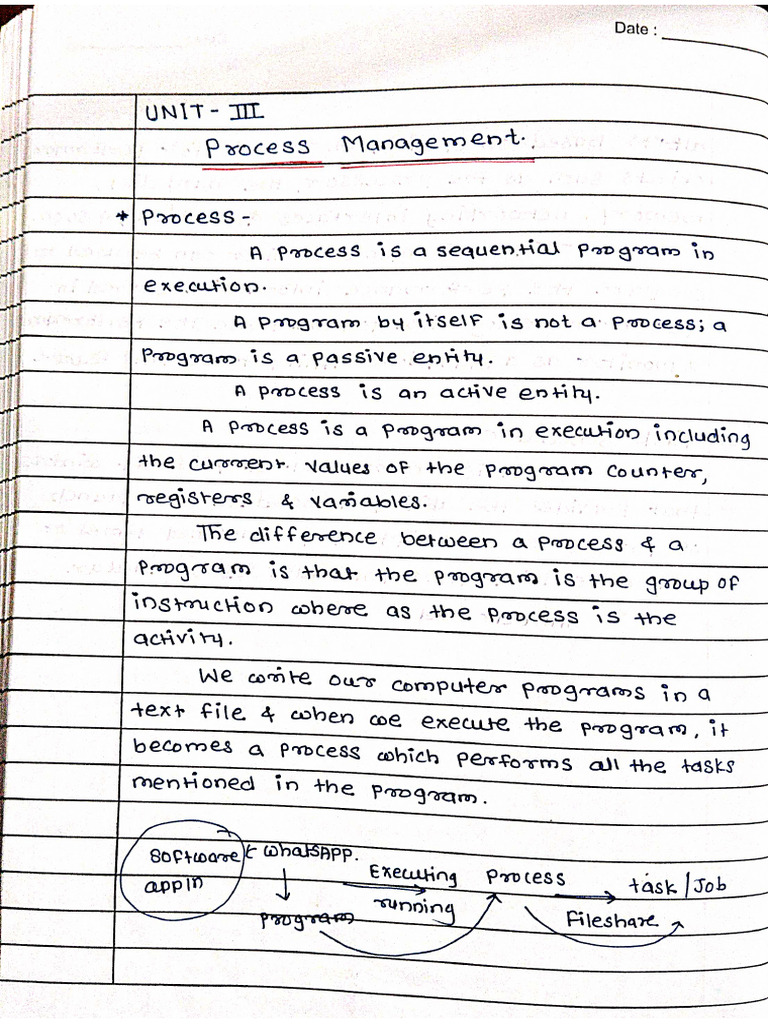 Date :
UNIT - III
Process Management.
* Process -
A Process is a sequential Program in
execution.
A Program by itself is not a Process; a
Program is a passive entity.
A process is an active entity.
A process is a program in execution including
the current values of the program counter,
registers & variables.
The difference between a process & a
program is that the program is the group of
instruction where as the process is the
activity.
We write our computer programs in a
text file & when we execute the program, it
becomes a process which performs all the tasks
mentioned in the program.
Software WhatsAPP.
appln
Executing Process task / Job
running
Program Fileshare